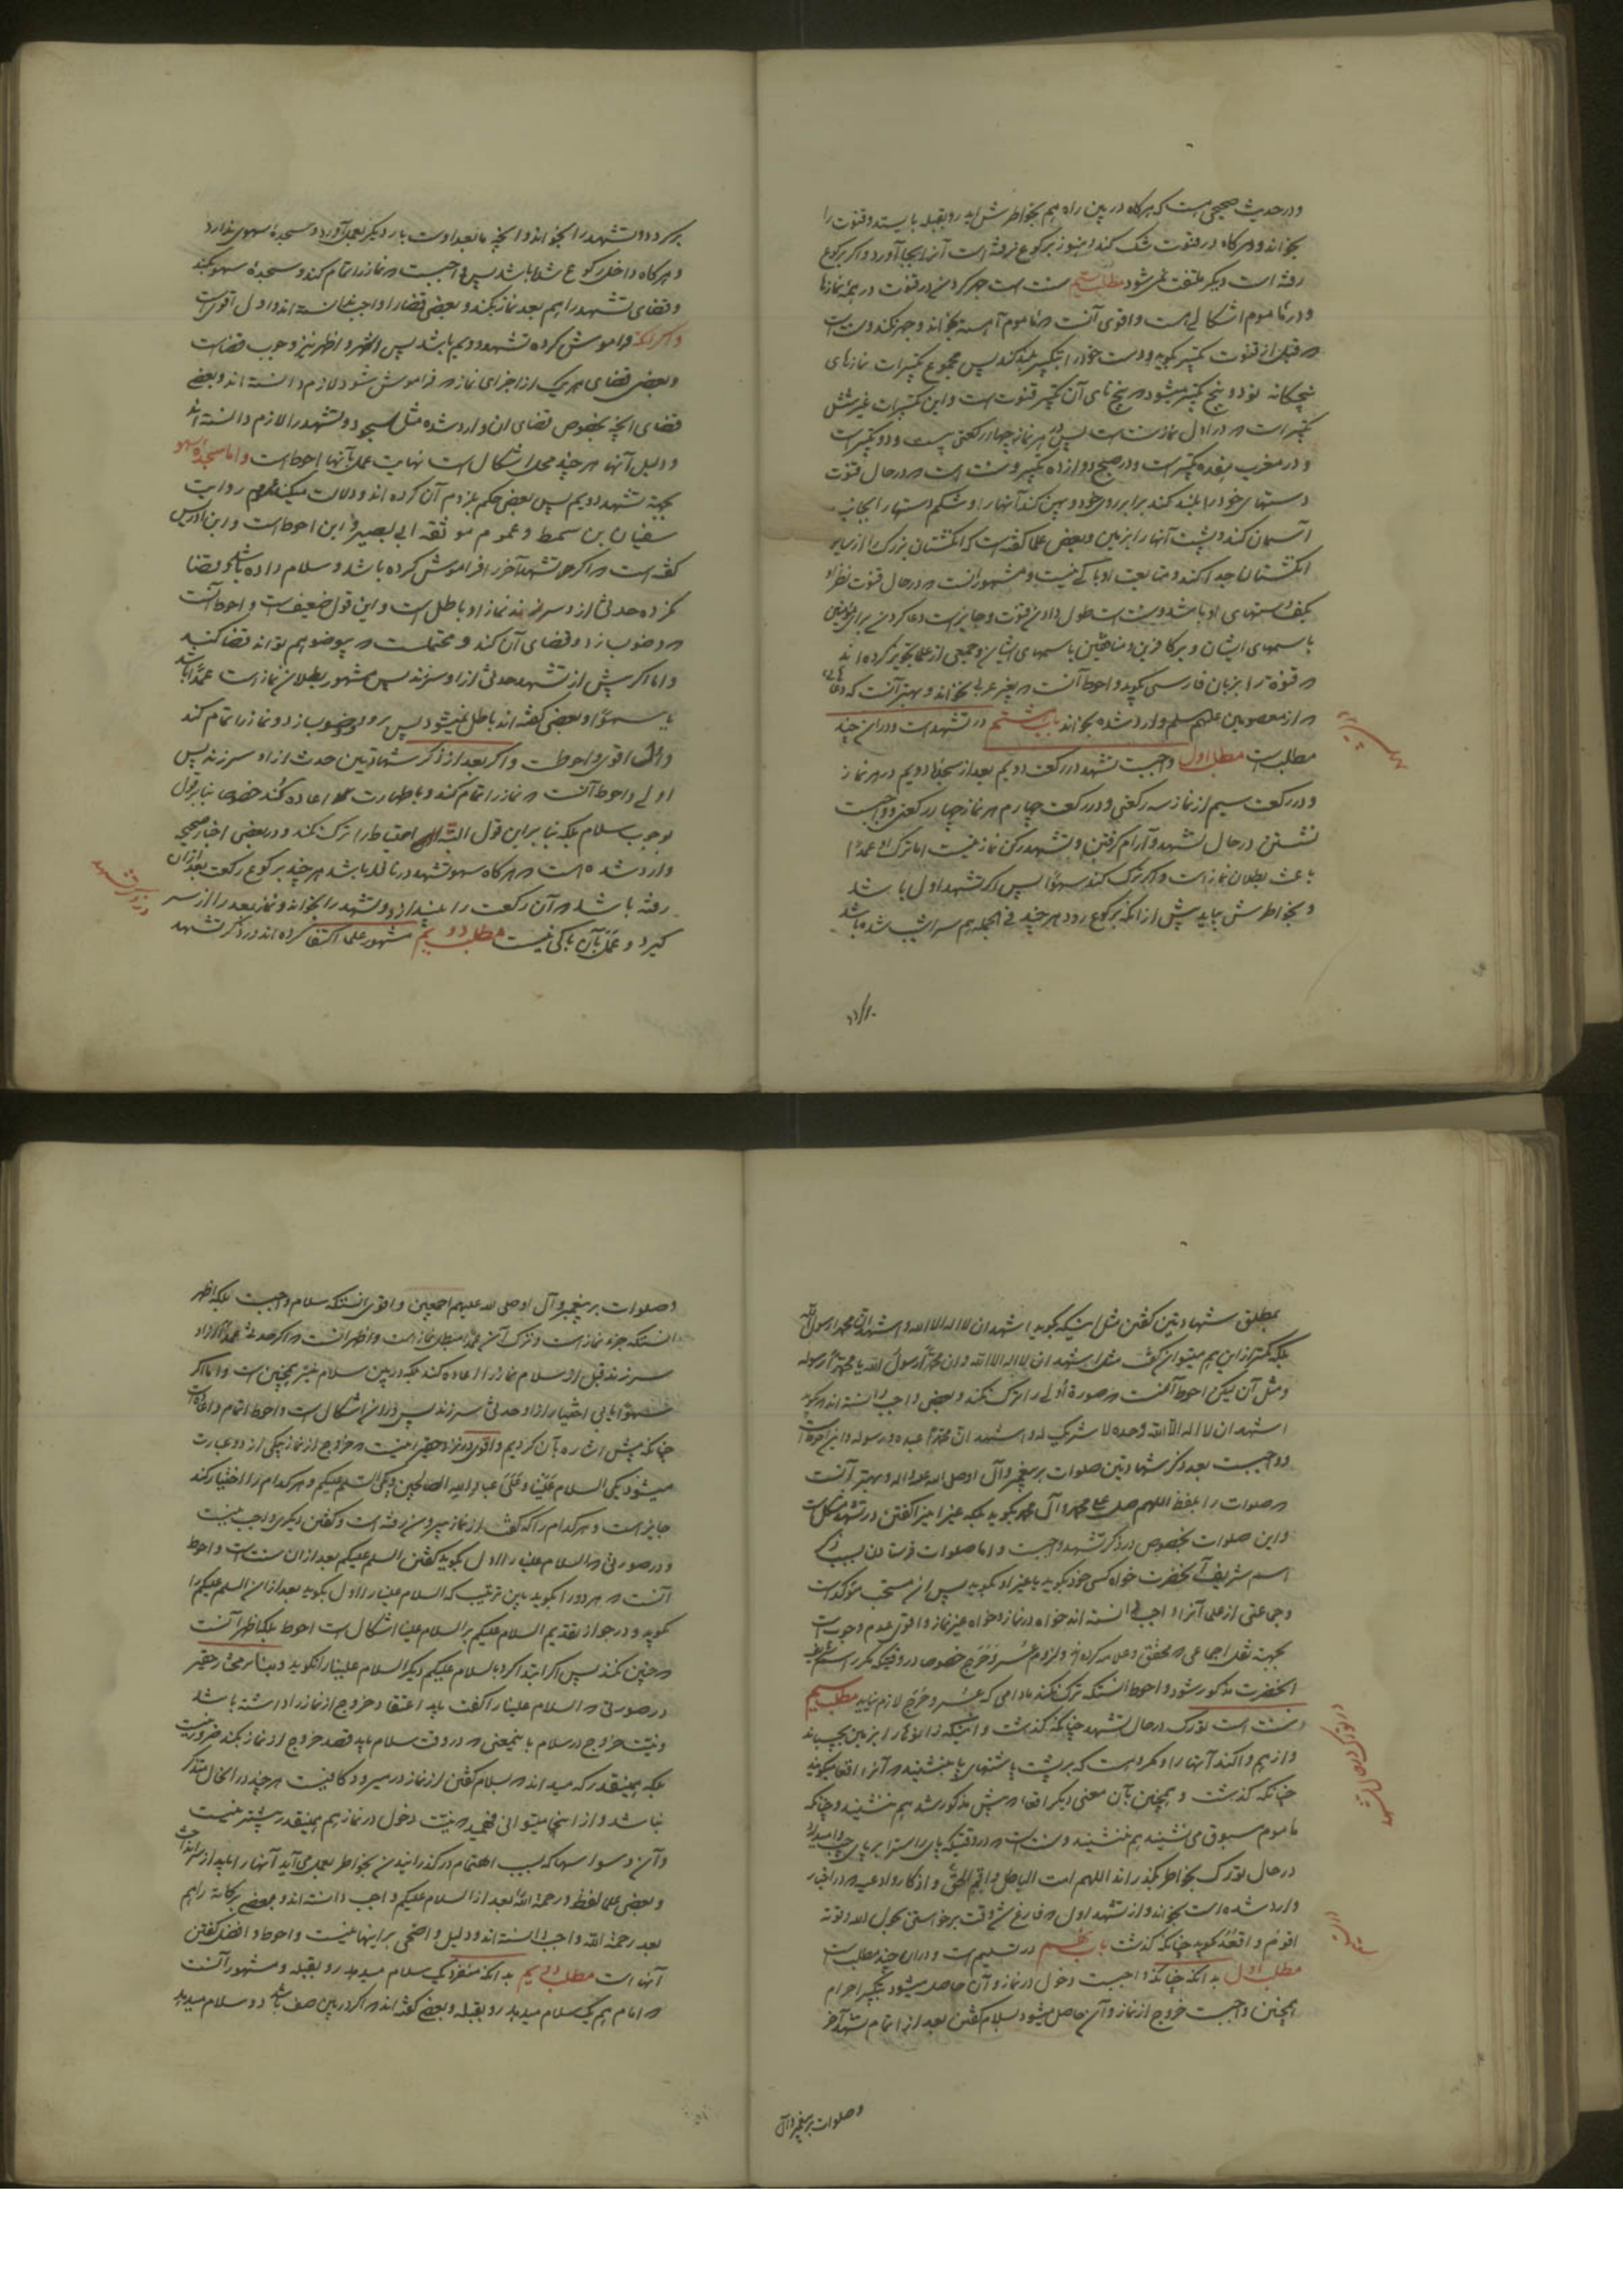 و در حدیث صحیحی هست که هرگاه در بین راه هم بخواطرش اید رو بقبله بایستد و قنوت را
بخواند و هرگاه در قنوت شک کند و هنوز برکوع نرفته است آنرا بجا آورد و اگر برکوع
رفته است دیگر ملتفت نمی شود مطلب سیم سنت است جهر کردن در قنوت در همۀ نمازها
و در ماموم اشکالی هست و اقوی آنست که ماموم آهسته بخواند و جهر نکند و سنت است
که قبل از قنوت تکبیر بگوید و دست خود را بتکبیر بلند کند پس مجموع تکبیرات نمازهای
پنجگانه نود و پنج تکبیر میشود که پنج تای آن تکبیر قنوت است و این تکبیرات غیر شش
تکبیر است که در اول نماز سنت است پس در هر نماز چهار رکعتی بیست و دو تکبیر است
و در مغرب هفده تکبیر است و در صبح دوازده تکبیر و سنت است که در حال قنوت
دستهای خود را بلند کند برابر روی خود و پهن کند آنها را و شکم دستها را بجانب
آسمان کند و پشت آنها را بزمین و بعضی علما گفته است که انگشتان بزرگ را از سایر
انگشتان جدا کند و متابعت او باکی نیست و مشهور انست که در حال قنوت نظر او
بکف دستهای او باشد و سنت است طول دادن قنوت و جایز است دعا کردن برای مؤمنین
باسمهای ایشان و بر کافرین و منافقین باسمهای ایشان و جمعی از علما تجویز کرده اند
که قنوت را بزبان فارسی بگوید و احوط آنست که بغیر عربی نخواند و بهتر آنست که دعائی
که از معصومین علیهم السلم وارد شده بخواند باب هشتم در تشهد است و در ان چند
مطلب است مطلب اول واجبست تشهد در رکعت دویم بعد از سجدۀ دویم در هر نماز
و در رکعت سیم از نماز سه رکعتی و در رکعت چهارم هر نماز چهار رکعتی و واجبست
نشستن در حال تشهد و آرام گرفتن و تشهد رکن نماز نیست اما ترک او عمدا
باعث بطلان نماز است و اگر ترک کند سهوا پس اگر تشهد اول باشد
و بخواطرش بیاید پیش از آنکه برکوع رود هر چند فی الجمله هم سراشیب شده باشد
برگردد و تشهد را بخواند و انچه ما بعد اوست بار دیگر بعمل آورد و سجدۀ سهوی ندارد
و هرگاه داخل رکوع شده باشد پس واجبست که نماز را تمام کند و سجدۀ سهو بکند
و قضای تشهد را هم بعد نماز بکند و بعضی قضا را واجب ندانسته اند و اول اقوی است
و اگر انکه فراموش کرده تشهد دویم باشد پس اشهر و اظهر نیز وجوب قضاست
و بعضی قضای هر یک از اجزای نماز که فراموش شود لازم دانسته اند و بعضی
قضای انچه بخصوص قضای ان وارد شده مثل سجود و تشهد را لازم دانسته اند
و دلیل آنها هر چند محل اشکال است نهایت عمل بآنها احوط است و اما سجدۀ سهو
بجهة تشهد دویم پس بعضی حکم بلزوم آن کرده اند و دلالت میکند عموم روایت
سفیان بن سمط و عموم موثقه ابی بصیر و این احوط است و ابن ادریس
گفته است که اگر تشهد آخر را فراموش کرده باشد و سلام داده باشد و قضا
نکرده حدثی از او سرزند نماز او باطل است و این قول ضعیف است و احوط آنست
که وضو بسازد و قضای آن کند و محتملست که بیوضو هم تواند قضا کند
و اما اگر پیش از تشهد حدثی از او سرزند پس مشهور بطلان نماز است عمدا باشد
یا سهوا و بعضی گفته اند باطل نمیشود پس برود وضو بسازد و نماز را تمام کند
و اول اقوی و احوط است و اگر بعد از ذکر شهادتین حدث از او سرزند پس
اولی و احوط آنست که نماز را تمام کند و با طهارت اعاده کند خصوصا بنا بر قول
بوجوب سلام بلکه بنا بر این قول البته احتیاط را ترک نکند و در بعضی اخبار صحیحه
وارد شده است که هرگاه سهو تشهد در نافله باشد هر چند برکوع رکعت بعد از ان
رفته باشد که آن رکعت را بیندازد و تشهد را بخواند و نماز بعد را از سر
گیرد و عمل بآن باکی نیست مطلب دویم مشهور علما اکتفا کرده اند در ذکر تشهد
در ذکر تشهد
بمطلق شهادتین گفتن مثل اینکه بگوید اشهد ان لا اله الا الله و اشهد ان محمدا رسول الله
بلکه کمتر از این هم میتوان گفت مثل اشهد ان لا اله الا الله و ان محمدا رسول الله یا محمدا رسوله
و مثل آن لیکن احوط آنست که صورة اولی را ترک نکند و بعضی واجب دانسته اند که بگوید
اشهد ان لا اله الا الله وحده لا شریک له و اشهد ان محمدا عبده و رسوله و این احوط است
و واجبست بعد ذکر شهادتین صلوات بر پیغمبر و آل او صلی الله علیه و اله و بهتر آنست
که صلوات را بلفظ اللهم صل علی محمد و آل محمد بگوید بلکه غیر اینرا گفتن در تشهد مشکل است
و این صلوات بخصوص در ذکر تشهد واجبست و اما صلوات فرستادن بسبب ذکر
اسم شریف آنحضرت خواه کسی خود بگوید یا غیر او بگوید پس ان مستحب مؤکد است
و جماعتی از علما آنرا واجب دانسته اند خواه در نماز و خواه غیر نماز و اقوی عدم وجوب است
بجهة نقل اجماعی که محقق و علامه کرده اند و لزوم عسر و حرج خصوصا در وقتیکه مکرر اسم شریف
انحضرت مذکور شود و احوط انستکه ترک نکند مادامی که عسر و حرج لازم نیاید مطلب سیم
سنت است تورک در حال تشهد چنانکه گذشت و اینکه زانوها را بزمین بچسباند
و از هم وا کند آنها را و مکروه است که بر پشت پاشنهای پا بنشیند که آنرا اقعا میگویند
چنانکه گذشت و همچنین بآن معنی دیگر اقعا که پیش مذکور شد هم ننشیند و چنانکه
ماموم مسبوق می نشیند هم ننشیند و سنت است که در وقتیکه پای راست را بر پای چپ وامیدارد
در حال تورک بخواطر بگذراند اللهم امت الباطل و اقم الحق و اذکار و ادعیه که در اخبار
وارد شده است بخواند و از تشهد اول که فارغ شد وقت برخواستن بحول الله و قوته
اقوم و اقعد بگوید چنانکه گذشت باب نهم در تسلیم است و در ان چند مطلب است
مطلب اول بدانکه چنانکه واجبست دخول در نماز و آن حاصل میشود بتکبیر احرام
همچنین واجبست خروج از نماز و آن حاصل میشود بسلام گفتن بعد از اتمام تشهد آخر
و صلوات بر پیغمبر و آل
و صلوات بر پیغمبر و آل او صلی الله علیهم اجمعین و اقوی انستکه سلام واجبست بلکه اظهر
انستکه جزء نماز است و ترک آن عمدا مبطل نماز است و اظهر انست که اگر حدثی عمدا از او
سرزند قبل از سلام نماز را اعاده کند بلکه در بین سلام نیز همچنین است و اما اگر
سهوا یا بی اختیار از او حدثی سرزند پس در ان اشکال است و احوط اتمام و اعاده است
چنانکه پیش اشاره بآن کردیم و اقوی در نزد حقیر اینست که خروج از نماز بیکی از دو عبارت
میشود یکی السلام علینا و علی عباد الله الصالحین و یکی السلم علیکم و هر کدام را اختیار کند
جایز است و هر کدام را که گفت از نماز بیرون رفته است و گفتن دیگری واجب نیست
و در صورتی که السلام علینا را اول بگوید گفتن السلم علیکم بعد از ان سنت است و احوط
آنست که هر دو را بگوید باین ترتیب که السلام علینا را اول بگوید بعد از ان السلم علیکم را
بگوید و در جواز تقدیم السلام علیکم بر السلام علینا اشکال است احوط بلکه اظهر آنست
که چنین نکند پس اگر ابتدا کرد بالسلام علیکم دیگر السلام علینا را نگوید و بنا بر مختار حقیر
در صورتی که السلام علینا را گفت باید اعتقاد خروج از نماز را داشته باشد
و نیت خروج در سلام باینمعنی که در وقت سلام باید قصد خروج از نماز بکند ضرور نیست
بلکه همینقدر که میداند که بسلام گفتن از نماز در میرود کافیست هر چند در انحال متذکر
نباشد و از اینجا میتوانی فهمید که نیت دخول در نماز هم همینقدر بیشتر نیست
و آن وسواسها که بسبب اهتمام در گذرانیدن بخواطر بعمل می آید آنها را باید از سر انداخت
و بعضی علما لفظ و رحمة الله بعد از السلام علیکم واجب دانسته اند و بعضی برکاته را هم
بعد رحمة الله واجب دانسته اند و دلیل واضحی بر اینها نیست و احوط و افضل گفتن
آنها است مطلب دویم بدانکه منفرد یک سلام میدهد رو بقبله و مشهور آنست
که امام هم یک سلام میدهد رو بقبله و بعضی گفته اند که اگر در بین صف باشد دو سلام میدهد